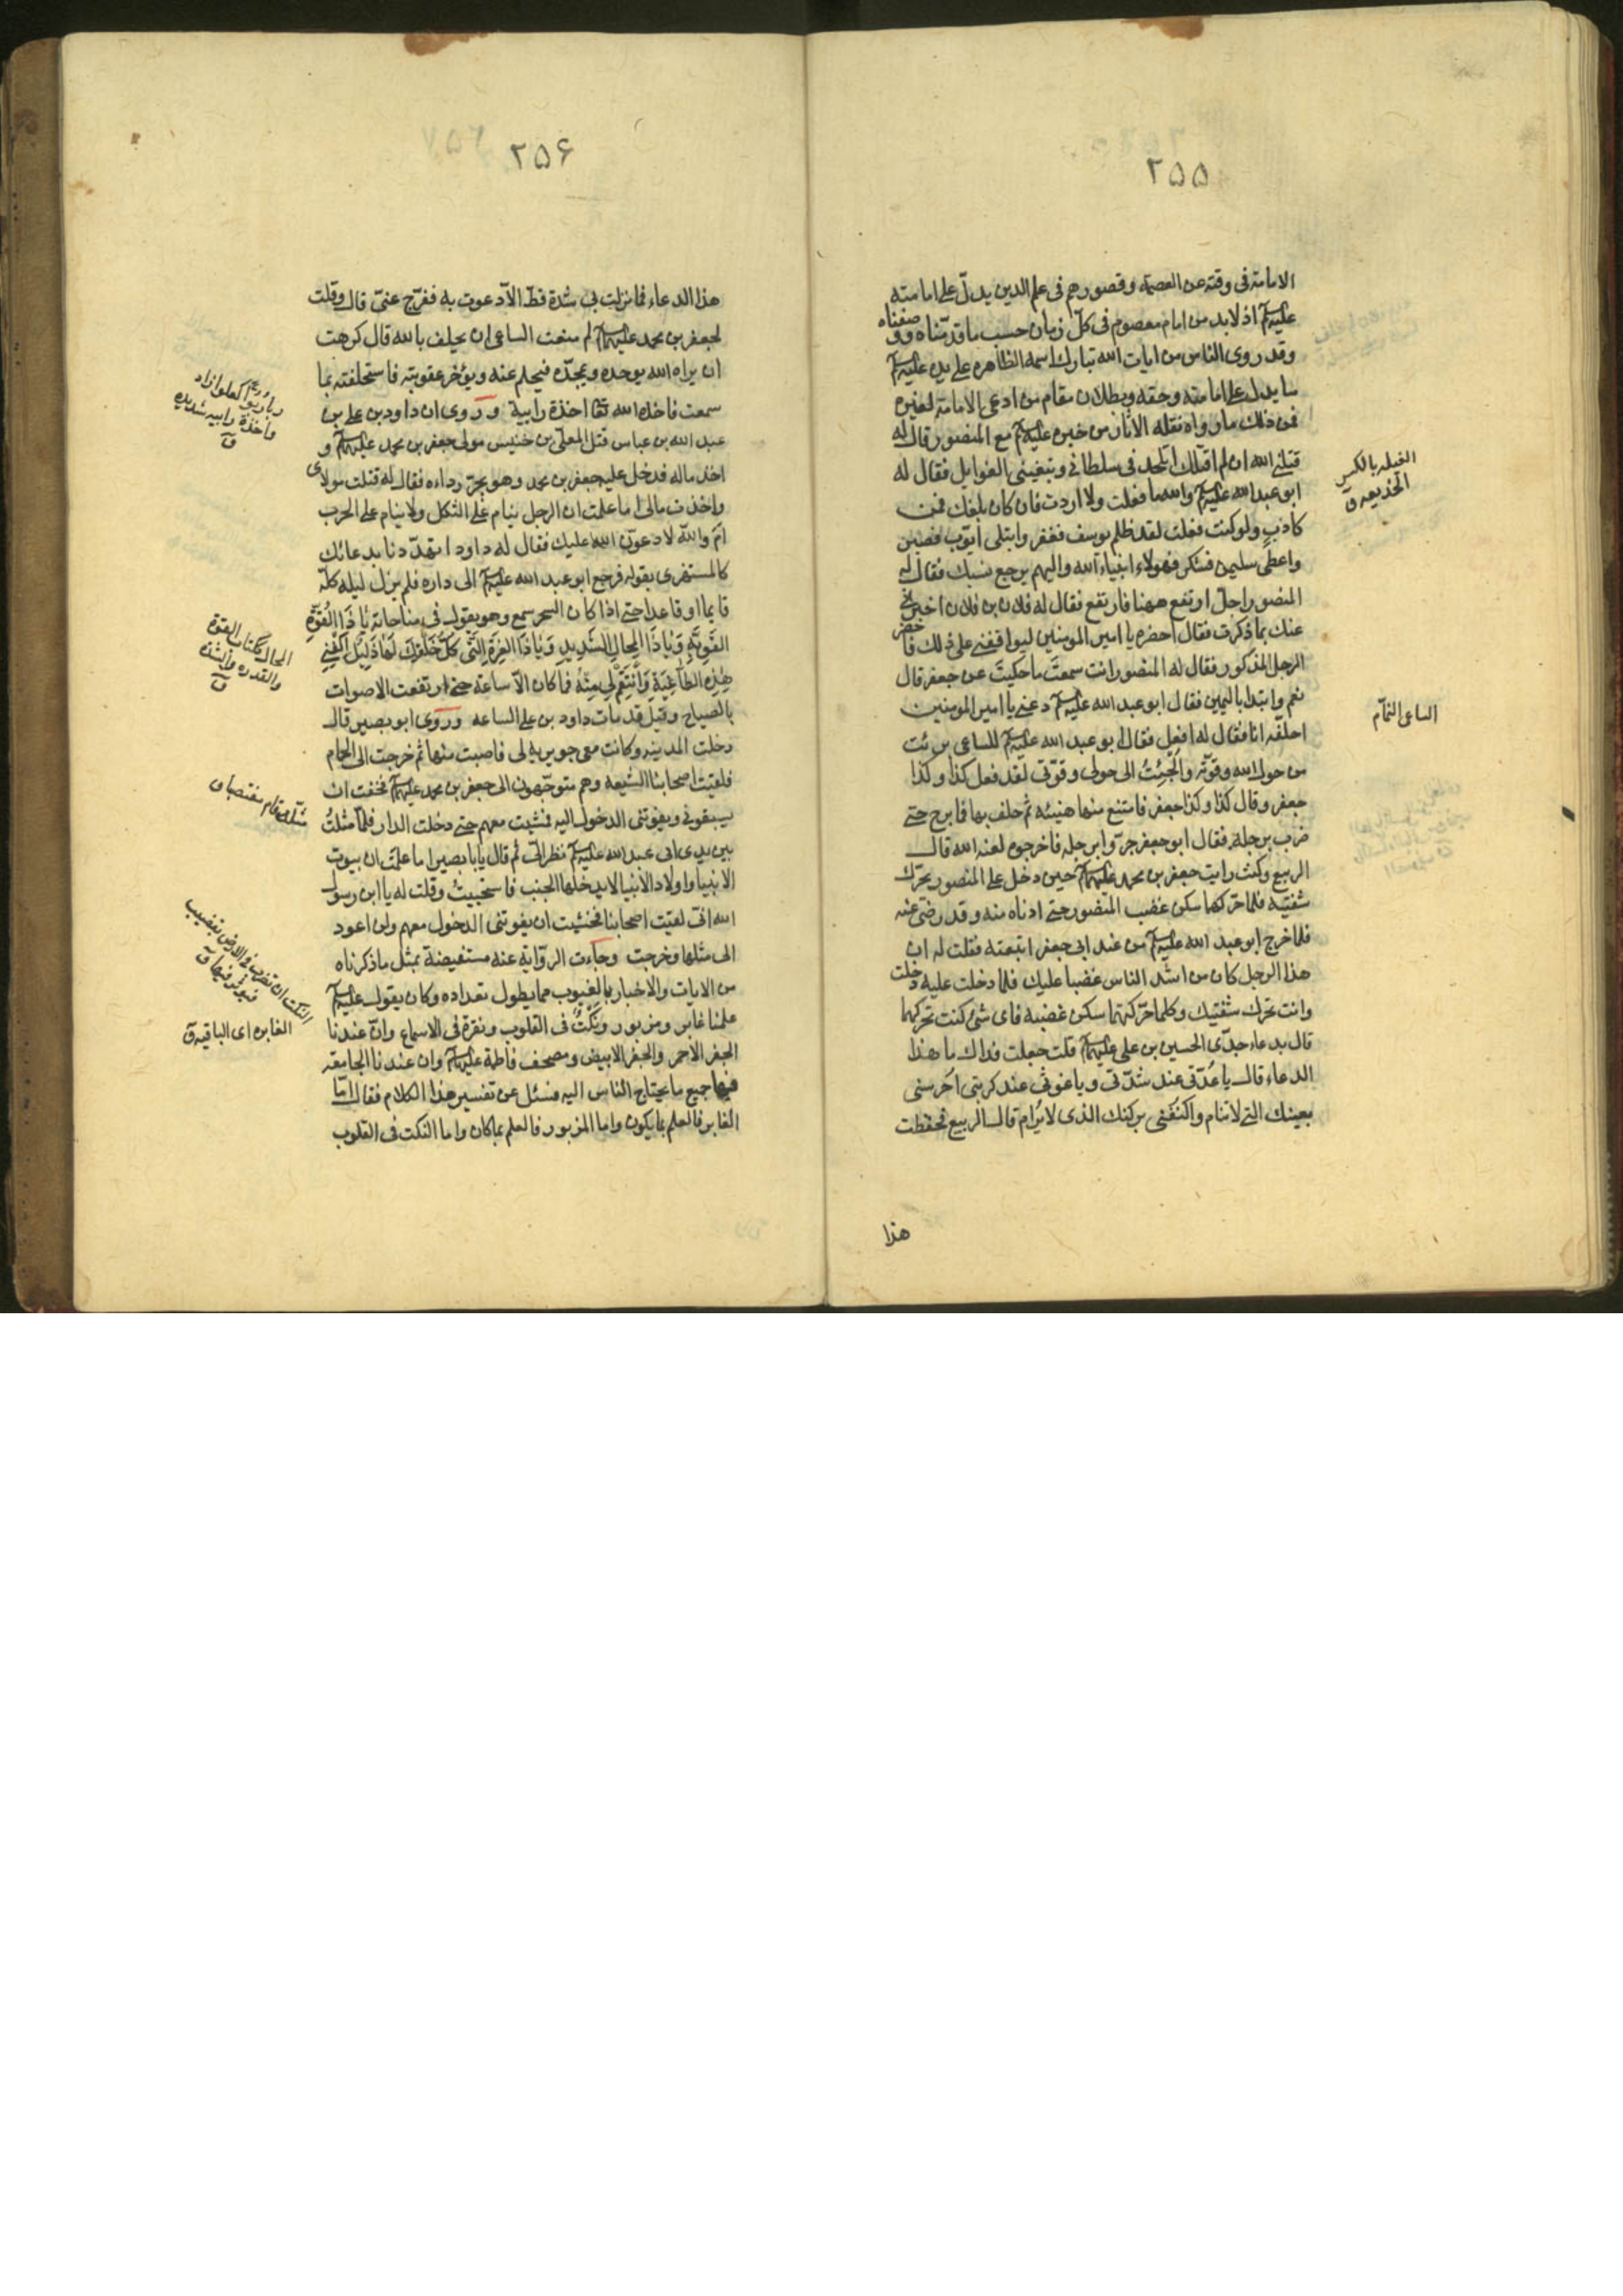 ٢٥٥
الامامة فى وقته عن العصمة وقصورهم فى علم الدين يدلّ على امامته
عليه السلم اذ لابد من امام معصوم فى كلّ زمان حسب ما قدّمناه ووصفناه
وقد روى الناس من ايات الله تبارك اسمه الظاهره على يده عليه السلم
ما يدل على امامته وحقه وبطلان مقام من ادعى الامامة لغيره
فمن ذلك ما رواه نقلة الاثار من خبره عليه السلم مع المنصور قال له
قتلنى الله ان لم اقتلك اتلحد فى سلطانى وتبغينى الغوايل فقال له
ابو عبد الله عليه السلم والله ما فعلت ولا اردت فان كان بلغك فمن
كاذب ولو كنت فعلت لقد ظلم يوسف فغفر وابتلى ايّوب فصبر
واعطى سليمن فشكر فهولاء انبياء الله واليهم يرجع نسبك فقال له
المنصور اجل ارتفع ههنا فارتفع فقال له فلان بن فلان اخبرنى
عنك بما ذكرت فقال احضره يا امير المومنين ليوافقنى على ذلك فاحضر
الرجل المذكور فقال له المنصور انت سمعتَ ما حكيتَ عن جعفر قال
نعم وابتدا باليمين فقال ابو عبد الله عليه السلم دعنى يا امير المومنين
احلفه انا فقال له افعل فقال ابو عبد الله عليه السلم للساعى برئت
من حول الله وقوّته والجئتُ الى حولى وقوّتى لقد فعل كذا وكذا
جعفر وقال كذا وكذا جعفر فامتنع منها هنيئه ثم حلف بها فما برح حتى
ضرب برجله فقال ابو جعفر جرّوا برجله فاخرجوه لعنه الله قال
الربيع وكنت رايت جعفر بن محمد عليهما السلم حين دخل على المنصور يحرّك
شفتيه فلما حرّكهما سكن غضب المنصور حتى ادناه منه وقد رضى عنه
فلما خرج ابو عبد الله عليه السلم من عند ابى جعفر اتبعته فقلت له ان
هذا الرجل كان من اشد الناس غضبا عليك فلما دخلت عليه دخلت
وانت تحرك شفتيك وكلما حرّكتهما سكن غضبه فاى شئ كنت تحركهما
قال بدعاء جدّى الحسين بن على عليهما السلم قلت جعلت فداك ما هذا
الدعاء قال يا عُدّتى عند شدّتى ويا غوثى عند كربتى احرسنى
بعينك التى لا تنام واكنفنى بركنك الذى لا يُرام قال الربيع فحفظت
هذا
الغيله بالكسر
الخديعه ق
الساعى النمّام
٢٥۶
هذا الدعاء فما نزلت بى شدة قطّ الاّ دعوت به ففرّج عنىّ قال وقلت
لجعفر بن محمد عليهما السلم لم منعت الساعى ان يحلف بالله قال كرهت
ان يراه الله يوحده ويمجدّه فيحلم عنه ويؤخر عقوبته فاستحلفته بما
سمعت فاخذه الله تعا اخذة رابية وروى ان داود بن على بن
عبد الله بن عباس قتل المعلّى بن خنيس مولى جعفر بن محمد عليهما السلم و
اخذ ماله فدخل عليه جعفر بن محمد وهو يجرّ رداءه فقال له قتلت مولاى
واخذت مالى اما علمت ان الرجل ينام على الثكل ولا ينام على الحرب
امَ والله لادعونّ الله عليك فقال له داود اتهدّدنا بدعائك
كالمستهزى بقوله فرجع ابو عبد الله عليه السلم الى داره فلم يزل ليله كلّه
قايما وقاعدا حتى اذا كان السحر سمع وهو يقول فى مناجاته يا ذَا القُوَّةِ
القَوِيَّةِ وَيَا ذَا المِحالِ الشَّدِيدِ وَيَا ذَا العِزَّةِ الَّتى كُلُّ خَلْقِكَ لَها ذَلِيلٌ اكْفِنِى
هٰذِهِ الطَّاغِيَةِ وَانْتَقِمْ لِى مِنْهُ فما كان الاّ ساعة حتى ارتفعت الاصوات
بالصياح وقيل قد مات داود بن على الساعه وروى ابو بصير قال
دخلت المدينه وكانت معى جويريه لى فاصبت منها ثم خرجت الى الحمام
فلقيت اصحابنا الشيعه وهم متوجّهون الى جعفر بن محمد عليهما السلم فخفت ان
يسبقونى ويفوتنى الدخول اليه فمشيت معهم حتى دخلت الدار فلمّا مثلتُ
بين يدى ابى عبد الله عليه السلم نظر الىّ ثم قال يابا بصير اما علمتَ ان بيوت
الانبيا واولاد الانبيا لا يدخلها الجنب فاستحييتُ وقلت له يا ابن رسول
الله انّى لقيت اصحابنا فخشيت ان يفوتنى الدخول معهم ولن اعود
الى مثلها وخرجت وجاءت الرّواية عنه مستفيضة بمثل ما ذكرناه
من الايات والاخبار بالغيوب مما يطول تعداده وكان يقول عليه السلم
علمنا غابر ومزبور ونَكْتٌ فى القلوب ونقرة فى الاسماع وانّ عندنا
الجفر الاحمر والجفر الابيض ومصحف فاطمة عليها السلم وان عندنا الجامعة
فيها جميع ما يحتاج الناس اليه فسئل عن تفسير هذا الكلام فقال امّا
الغابر فالعلم بما يكون واما المزبور فالعلم بما كان واما النكت فى القلوب
واخذة رابيه شديده
ق
المحال ككتاب القوة
والقدره والشدّة
ق
مثل قام منتصبا ق
النكت ان تضرب فى الارض بقضيب
فيوثر فيها ق
الغابره اى الباقيه ق